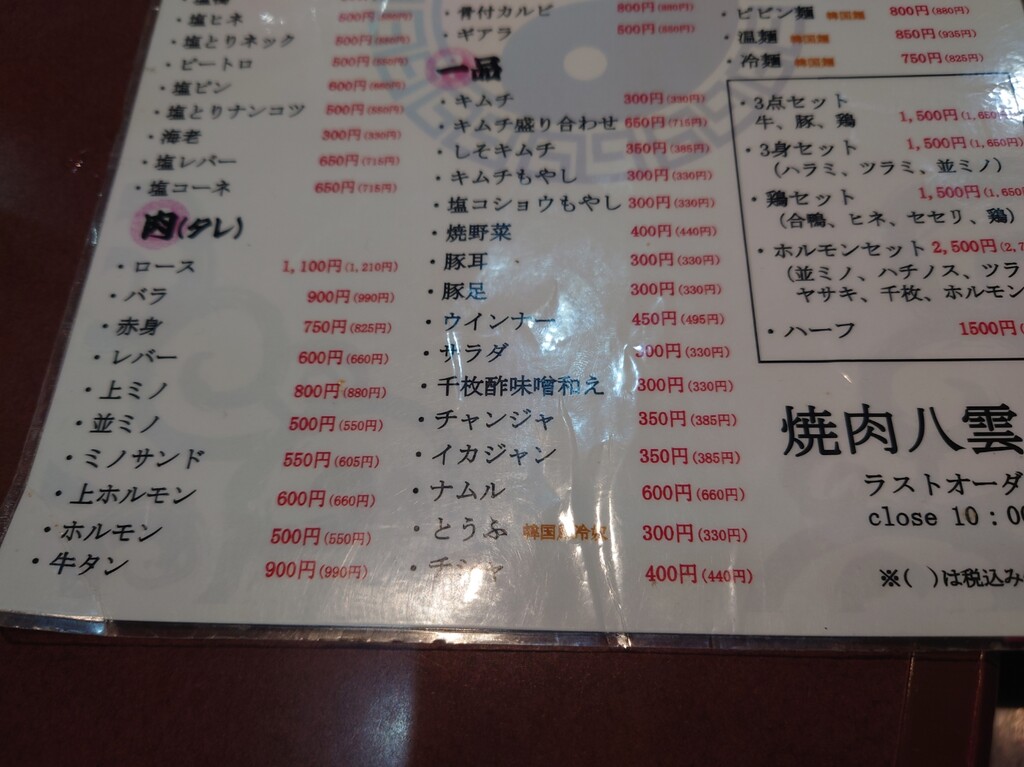 ・塩ヒネ 500円(550円)
・塩とりネック 500円(550円)
・ピートロ 500円(550円)
・塩ピン 600円(660円)
・塩とりナンコツ 500円(550円)
・海老 300円(330円)
・塩レバー 650円(715円)
・塩コーネ 650円(715円)
肉(タレ)
・ロース 1,100円(1,210円)
・バラ 900円(990円)
・赤身 750円(825円)
・レバー 600円(660円)
・上ミノ 800円(880円)
・並ミノ 500円(550円)
・ミノサンド 550円(605円)
・上ホルモン 600円(660円)
・ホルモン 500円(550円)
・牛タン 900円(990円)
・骨付カルビ 800円(880円)
・ギアラ 500円(550円)
一品
・キムチ 300円(330円)
・キムチ盛り合わせ 650円(715円)
・しそキムチ 350円(385円)
・キムチもやし 300円(330円)
・塩コショウもやし 300円(330円)
・焼野菜 400円(440円)
・豚耳 300円(330円)
・豚足 300円(330円)
・ウインナー 450円(495円)
・サラダ 300円(330円)
・千枚酢味噌和え 300円(330円)
・チャンジャ 350円(385円)
・イカジャン 350円(385円)
・ナムル 600円(660円)
・とうふ 韓国風冷奴 300円(330円)
・チシャ 400円(440円)
・ビビン麺 韓国麺 800円(880円)
・温麺 韓国麺 850円(935円)
・冷麺 韓国麺 750円(825円)
・3点セット 1,500円(1,650
牛、豚、鶏
・3身セット 1,500円(1,650円)
(ハラミ、ツラミ、並ミノ)
・鶏セット 1,500円(1,650
(合鴨、ヒネ、セセリ、鶏)
・ホルモンセット 2,500円(2,7
(並ミノ、ハチノス、ツラ
ヤサキ、千枚、ホルモン
・ハーフ 1500円(
焼肉八雲
ラストオーダ
close 10:00
※( )は税込み